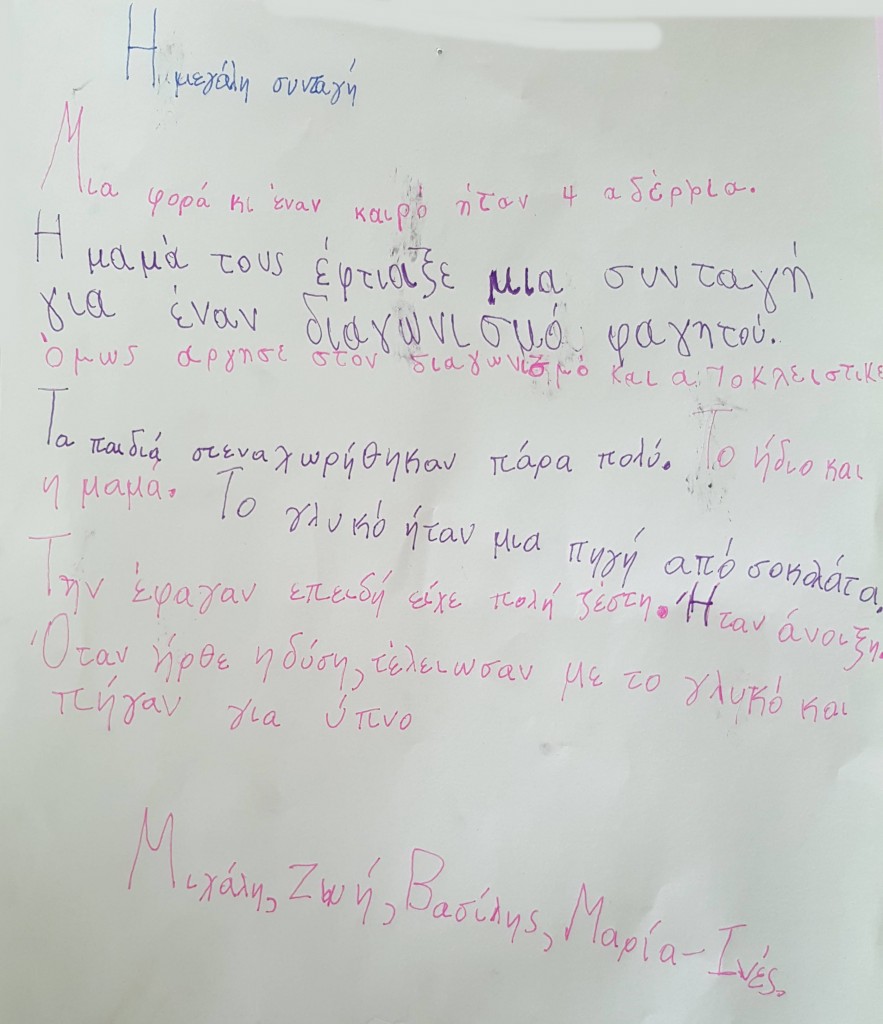 Η μεγάλη συνταγή
Μια φορά κι έναν καιρό ήταν 4 αδέρφια.
Η μαμά τους έφτιάξε μια συνταγή
για έναν διαγωνισμό φαγητού.
Όμως άργησε στον διαγωνισμό και αποκλείστικε
Τα παιδιά στεναχωρήθηκαν πάρα πολύ. Το ήδιο και
η μαμά. Το γλυκό ήταν μια πηγή από σοκολάτα.
Την έφαγαν επειδή είχε πολή ζέστη. Ήταν άνοιξη.
Όταν ήρθε η δύση, τέλειωσαν με το γλυκό και
πήγαν για ύπνο
Μιχάλης, Ζωή, Βασίλης, Μαρία-Ινές.